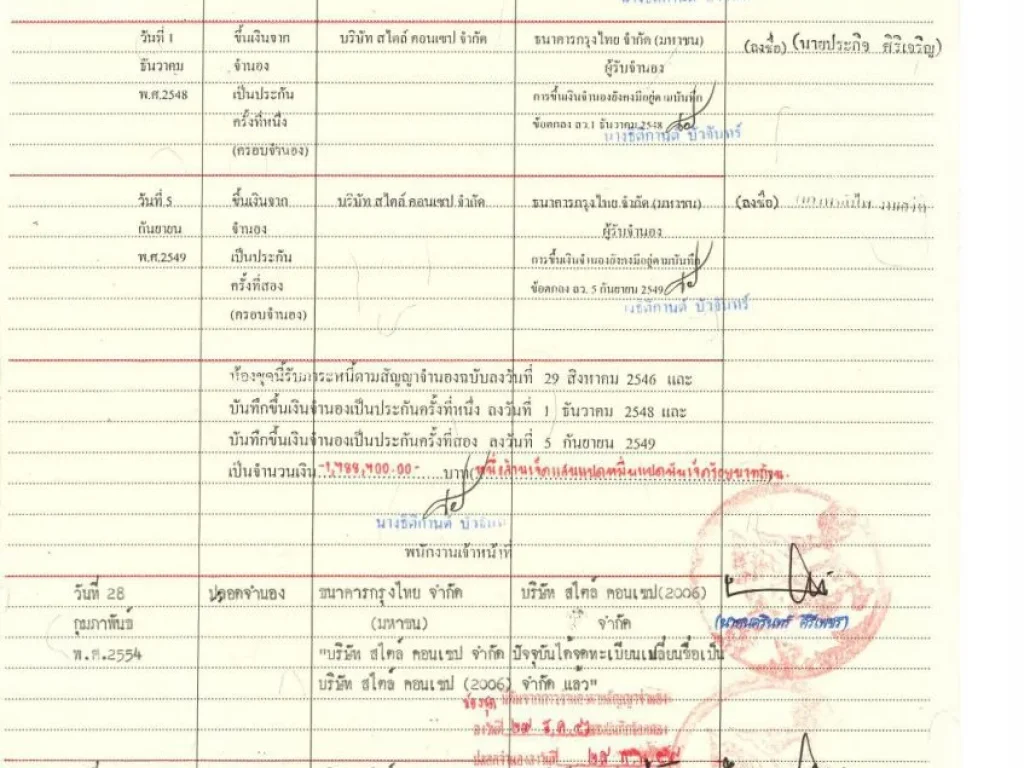 วันที่ 1 ขึ้นเงินจาก บริษัท สไตล์ คอนเซป จำกัด ธนาคารกรุงไทย จำกัด (มหาชน) (ลงชื่อ) (นายประกิจ ศิริเจริญ)
ธันวาคม จำนอง ผู้รับจำนอง
พ.ศ.2548 เป็นประกัน การขึ้นเงินจำนองยังคงมีอยู่ตามบันทึก
ครั้งที่หนึ่ง ข้อตกลง ลว.1 ธันวาคม 2548
นางธิติกานต์ บัวจันทร์
(ครอบจำนอง)
วันที่ 5 ขึ้นเงินจาก บริษัท สไตล์ คอนเซป จำกัด ธนาคารกรุงไทย จำกัด (มหาชน) (ลงชื่อ)
กันยายน จำนอง ผู้รับจำนอง
พ.ศ.2549 เป็นประกัน การขึ้นเงินจำนองยังคงมีอยู่ตามบันทึก
ครั้งที่สอง ข้อตกลง ลว. 5 กันยายน 2549
นางธิติกานต์ บัวจันทร์
(ครอบจำนอง)
ห้องชุดนี้รับภาระหนี้ตามสัญญาจำนองฉบับลงวันที่ 29 สิงหาคม 2546 และ
บันทึกขึ้นเงินจำนองเป็นประกันครั้งที่หนึ่ง ลงวันที่ 1 ธันวาคม 2548 และ
บันทึกขึ้นเงินจำนองเป็นประกันครั้งที่สอง ลงวันที่ 5 กันยายน 2549
เป็นจำนวนเงิน -1,788,700.00- บาท (หนึ่งล้านเจ็ดแสนแปดหมื่นแปดพันเจ็ดร้อยบาทถ้วน)
นางธิติกานต์ บัวจันทร์
พนักงานเจ้าหน้าที่
วันที่ 28 ปลอดจำนอง ธนาคารกรุงไทย จำกัด บริษัท สไตล์ คอนเซป(2006)
กุมภาพันธ์ (มหาชน) จำกัด (นายนครินทร์ ศิริเพชร)
พ.ศ.2554 "บริษัท สไตล์ คอนเซป จำกัด ปัจจุบันได้จดทะเบียนเปลี่ยนชื่อเป็น
บริษัท สไตล์ คอนเซป (2006) จำกัด แล้ว"
ห้องชุด
ลงวันที่ ๒๙ ส.ค. ๔๖
ปลอดจำนองลงวันที่ ๒๘ ก.พ. ๕๔